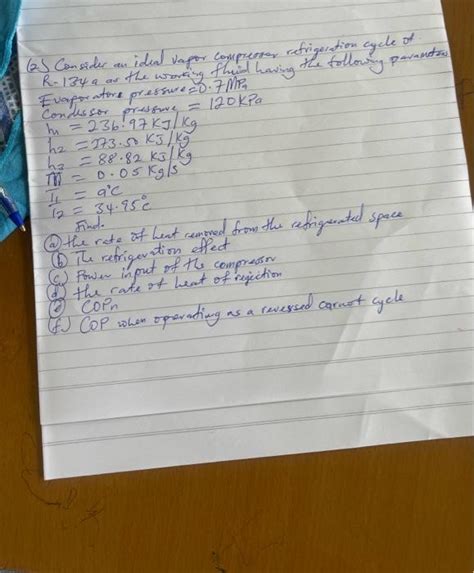 (2) Consider an ideal vapor compressor refrigeration cycle of
R-134a as the working fluid having the following parameters
Evaporators pressure = 0.7MPa
Condessor pressure = 120KPa
h1 = 236.97 KJ/kg
h2 = 273.50 KJ/kg
h3 = 88.82 KJ/kg
ṁ = 0.05 Kg/s
T1 = 9°C
T2 = 34.95°C
Find.
(a) the rate of heat removed from the refrigerated space
(b) The refrigeration effect
(c) Power input of the compressor
(d) the rate of heat of rejection
(e) COPR
(f) COP when operating as a reversed carnot cycle